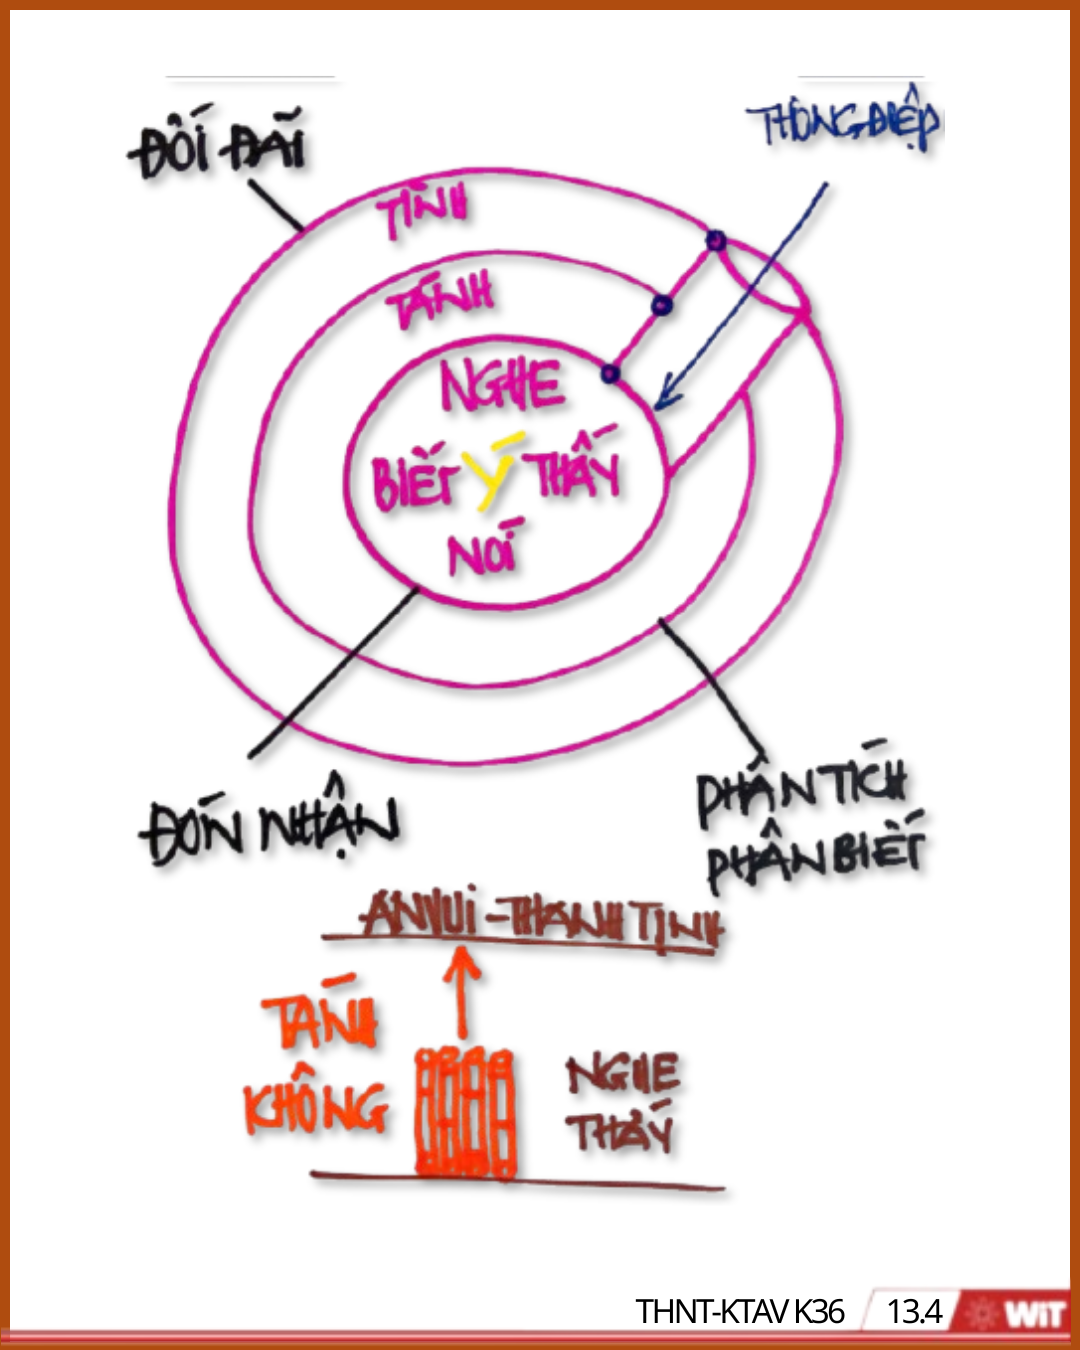 ĐỐI ĐÃI
THÔNG ĐIỆP
TÌNH
TÁNH
NGHE
BIẾT Ý THẤY
NÓI
ĐÓN NHẬN
PHÂN TÍCH
PHÂN BIỆT
AN VUI - THANH TỊNH
TÁNH
KHÔNG
NGHE
THẤY
THNT-KTAV K36 13.4 WiT